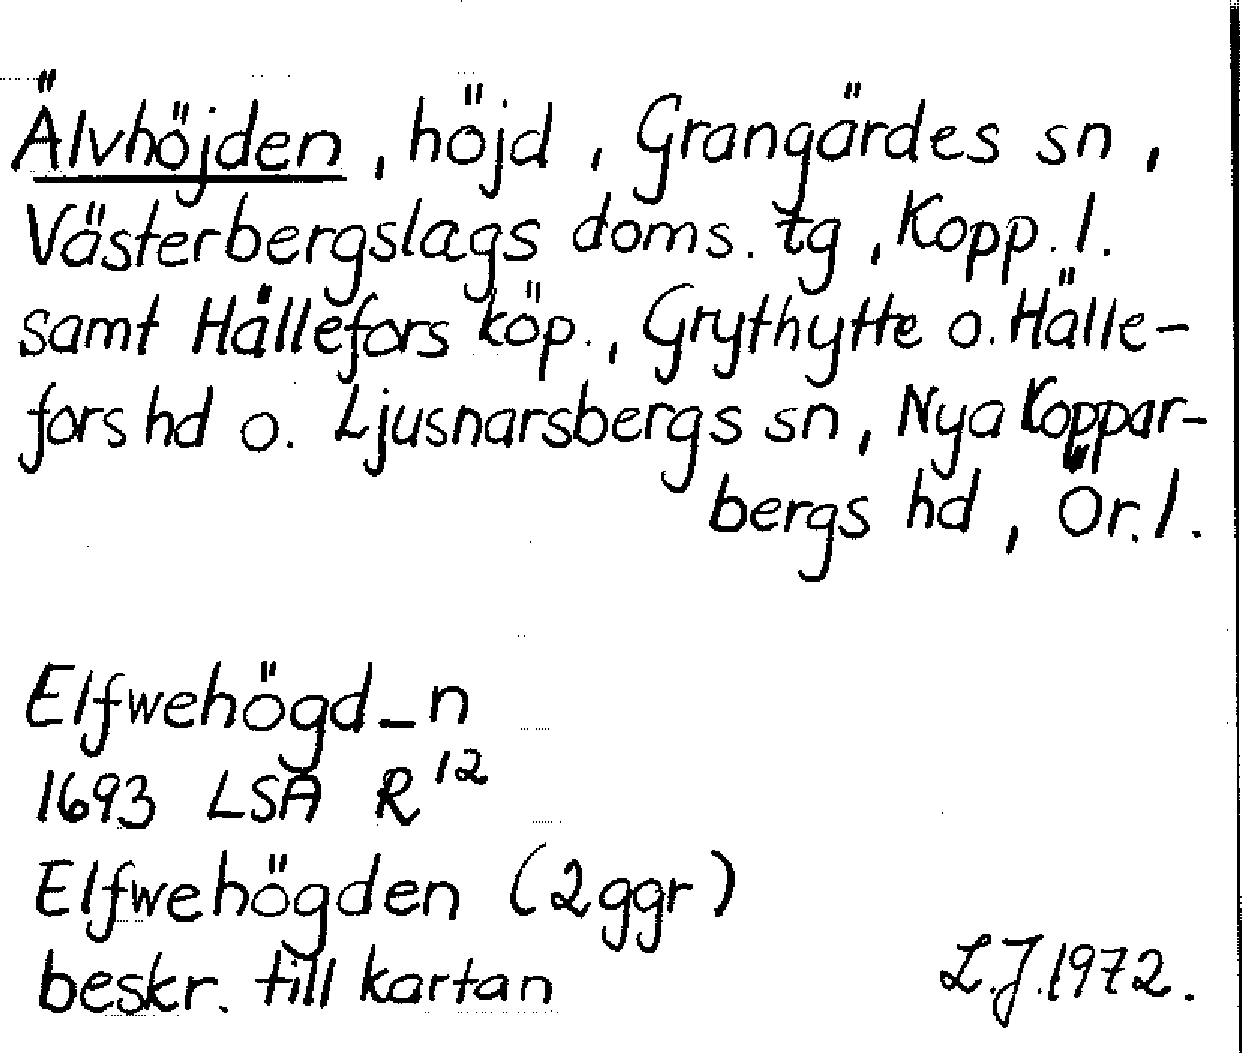 Älvhöjden, höjd, Grangärdes sn,
Västerbergslags doms. tg, Kopp. l.
samt Hällefors köp., Grythytte o. Hälle-
fors hd o. Ljusnarsbergs sn, Nya Koppar-
bergs hd, Ör. l.
Elfwehögd_n
1693 LSA R¹²
Elfwehögden (2ggr)
beskr. till kartan
L.J. 1972.